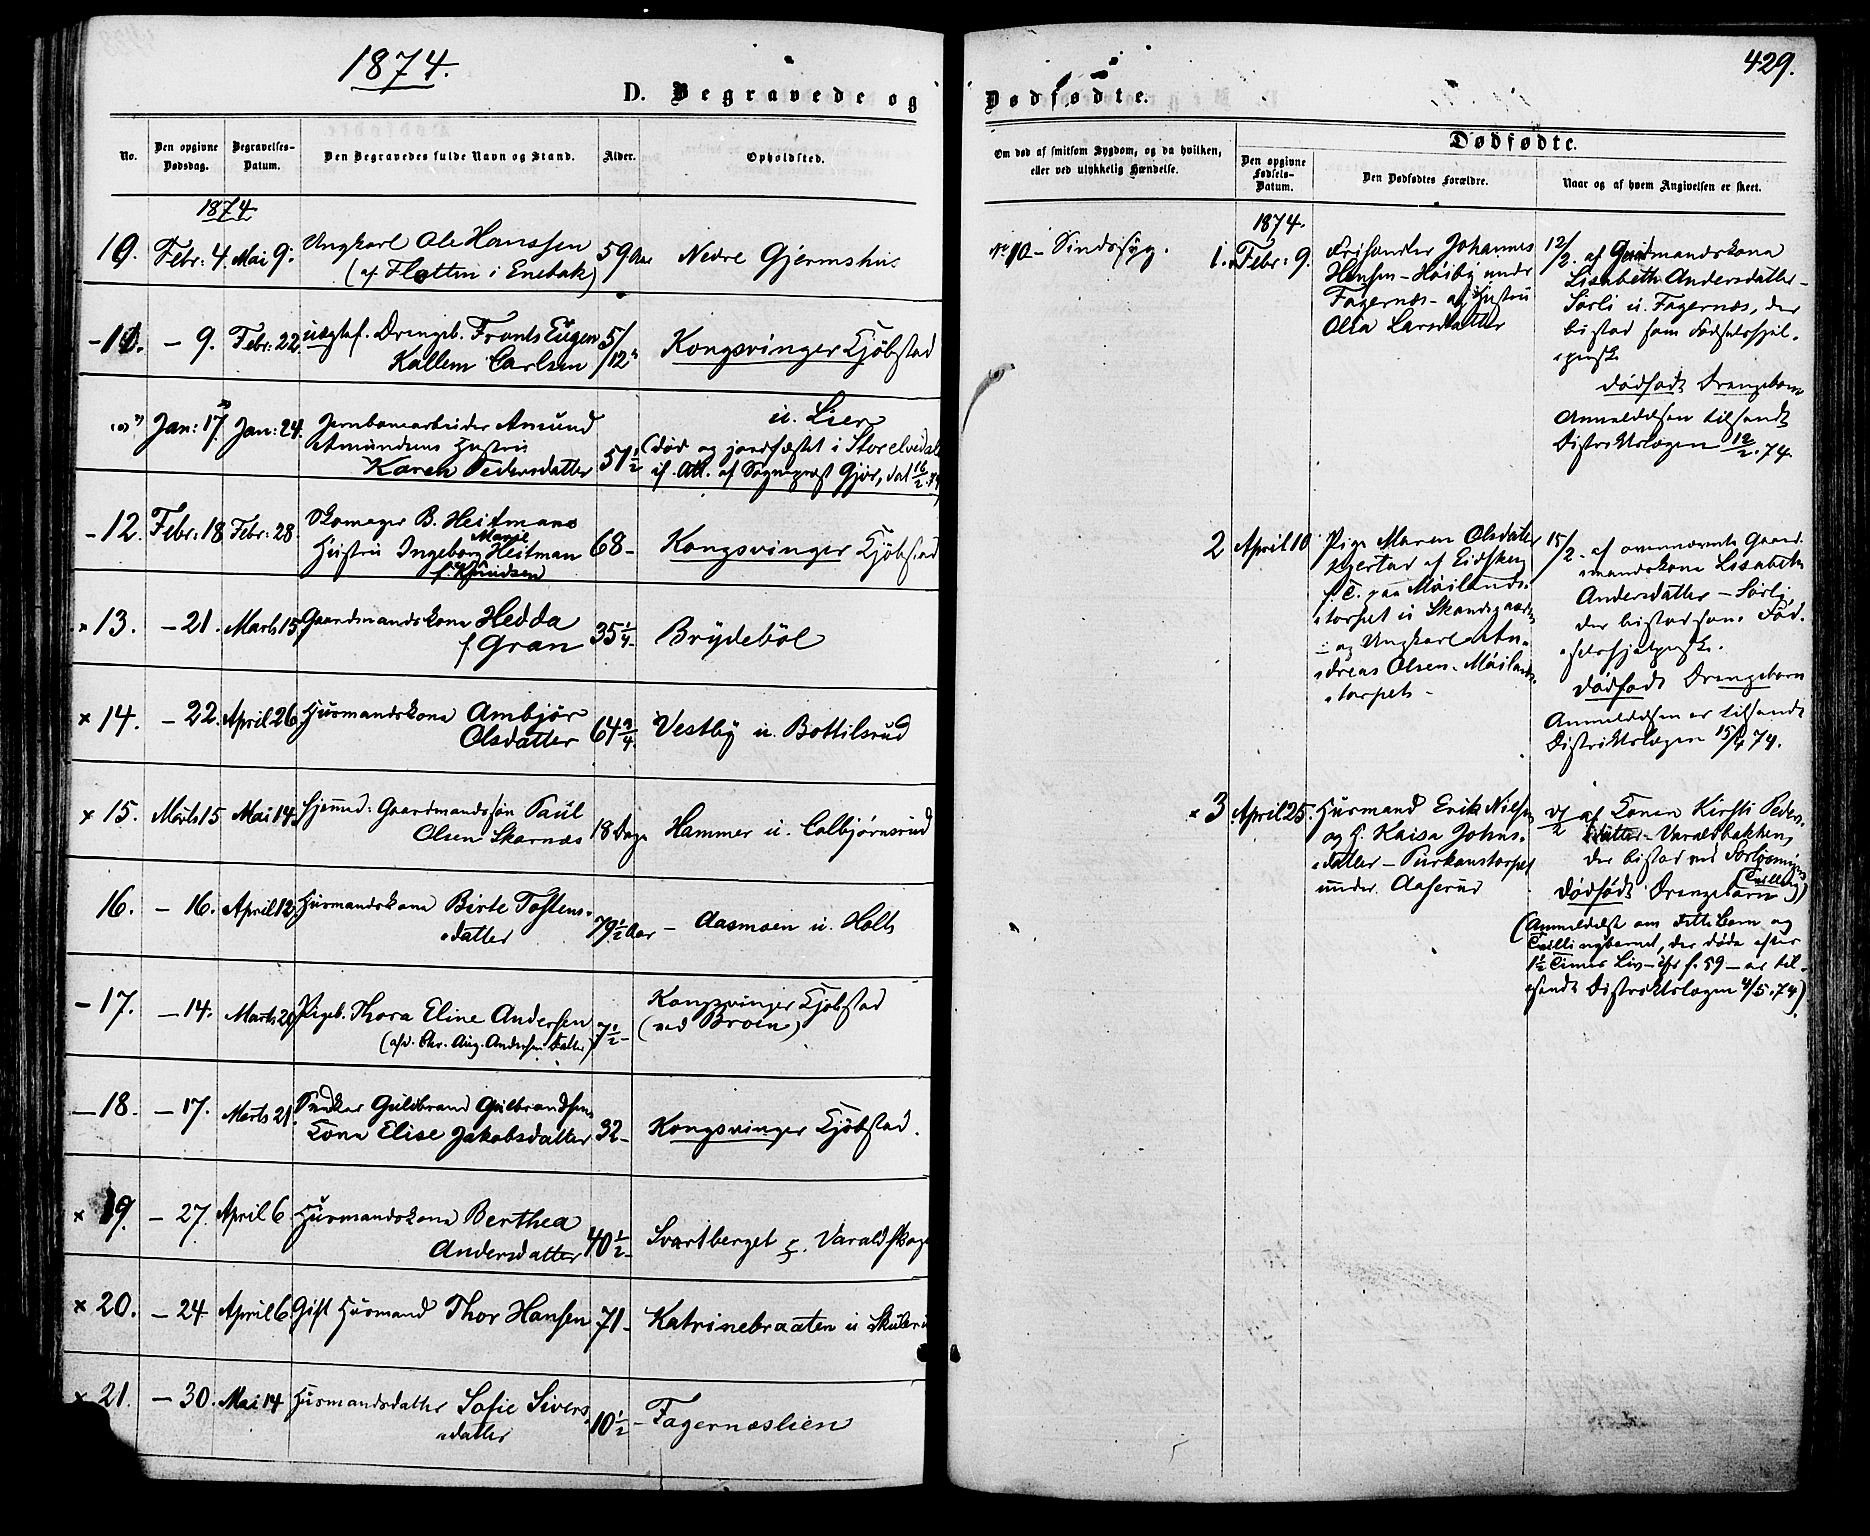 1874.
D. Begravede og
No.
Den opgivne Dødsdag.
Begravelses-Datum.
Den Begravedes fulde Navn og Stand.
Alder.
Opholdsted.
1874
10. Febr: 4. Mai 9. Ungkarl Ole Hanssen 59 Aar Nedre Gjermshus
(af Flatten i Enebak)
- 11. - 9. Febr: 22. uægtef. Drengeb. Frants Eugen 5/12 Kongsvinger Kjøbstad
Kallem Carlsen
Jan: 17. Jan: 24. Jernbanearbeider Amund u. Lier
Amundsens Hustru (død og jordfæstet i Storelvedal
Karen Pedersdatter 51 1/2 if. Att. af Sognepræst Gjør, dat 16/2 74)
- 12. Febr: 18 Febr: 28. Skomager B. Heitmans
Marie
Hustru Ingeborg Heitman 68 - Kongsvinger Kjøbstad
f. Knudsen
× 13. - 21. Marts 15. Gaardmandskone Hedda 35 1/4 - Brydeböl
f. Gran
× 14. - 22. April 26. Husmandskone Ambjør 64 3/4 Vestby u. Bottilsrud
Olsdatter
× 15. Marts 15 Mai 14. hjemmed: Gaardmandssøn Paul
Olsen Skarnæs 18 Dage Hammer u. Colbjørnsrud
16. - 16. April 12. Husmandskone Birte Tostens- 79 1/2 Aar - Aasmoen u. Holts
datter
- 17. - 14. Marts 20 Pigeb. Thora Eline Andersen 7 1/2 - Kongsvinger Kjøbstad
(afd. Chr. Aug. Andersens Datter) (ved Broen)
- 18. - 17. Marts 21. Snedker Guldbrand Gulbrandsens
Kone Elise Jakobsdatter 32 - Kongsvinger Kjøbstad.
× 19. - 27. April 6 Husmandskone Berthea
Andersdatter 40 1/2 - Svartberget p. Varaldskoge
× 20. - 24 April 6. Gift Husmand Thor Hansen 71 - Katrinebraaten u Skulerud
× 21. - 30. Mai 14 Husmandsdatter Sofie Sivers- 10 1/2 - Fagernæslien
datter
429.
Dødfødte.
Om død af smitsom Sygdom, og da hvilken, eller ved ulykkelig Hændelse.
Dødfødte.
Den opgivne Fødsels-Datum.
Den Dødfødtes Forældre.
Naar og af hvem Angivelsen er skeet.
1874.
No 10 - Sindssyg.
1. Febr: 9.
Johannes
Hansen - Høiby under
Fagernæs - og Hustru
Olea Larsdatter
12/2. af Gaardmandskona
Lisabeth Andersdatter -
Sørli u. Fagernæs, der
bistod som Fødselshjel-
perske
dødfødt Drengebarn
Anmeldelsen tilsendt
Distriktslægen 12/2. 74.
2 April 10
Pige Maren Olsdatter
Kjerstad af Eidskog
f. T. paa Møilands-
torpet u Skansgaarden
- og Ungkarl An-
dreas Olsen - Møilands-
torpet -
15/2. af ovennævnte Gaard-
mandskona Lisabeth
Andersdatter - Sørli,
der bistod som Fød-
selshjelperske.
dødfødt Drengebarn
Anmeldelsen er tilsendt
Distriktslægen 15/4 74.
× 3 April 25.
Husmand Erik Nilsen
og H. Kaisa Johns-
datter - Purkanstorpet
under Aaserud
af Konen Kirsti Peders-
datter - Varaldbakken,
der bistod ved Forløsningen
(Tvilling)
dødfødt Drengebarn
(Anmeldelse om dette Barn og
Tvillingbarnet, der døde efter
1 1/2 Times Liv - cfr f. 59 - er til-
sendt Distriktslægen 4/5. 74)